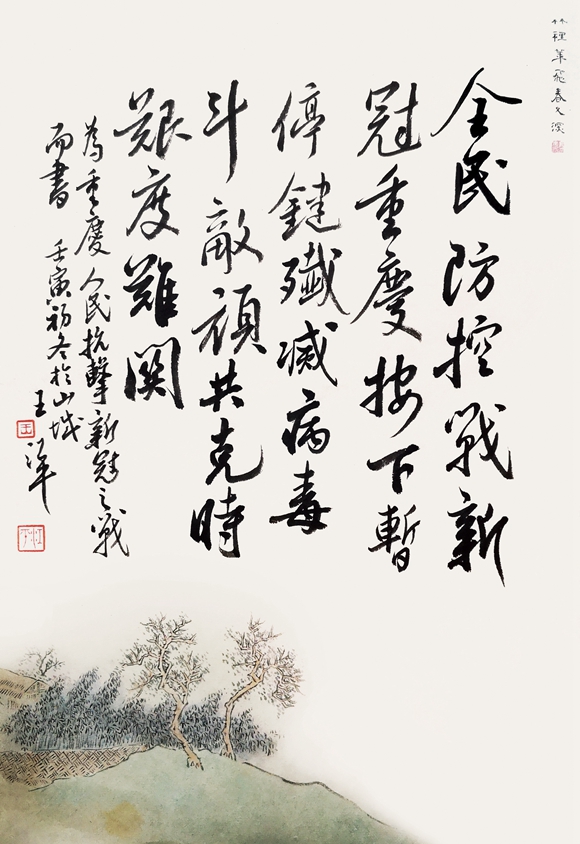 竹裡華飛春又深
全民防控戰新
冠重慶按下暫
停鍵殲滅病毒
斗敵頑共克時
艱度難關
為重慶人民抗擊新冠之戰
而書 壬寅初冬於山城
王